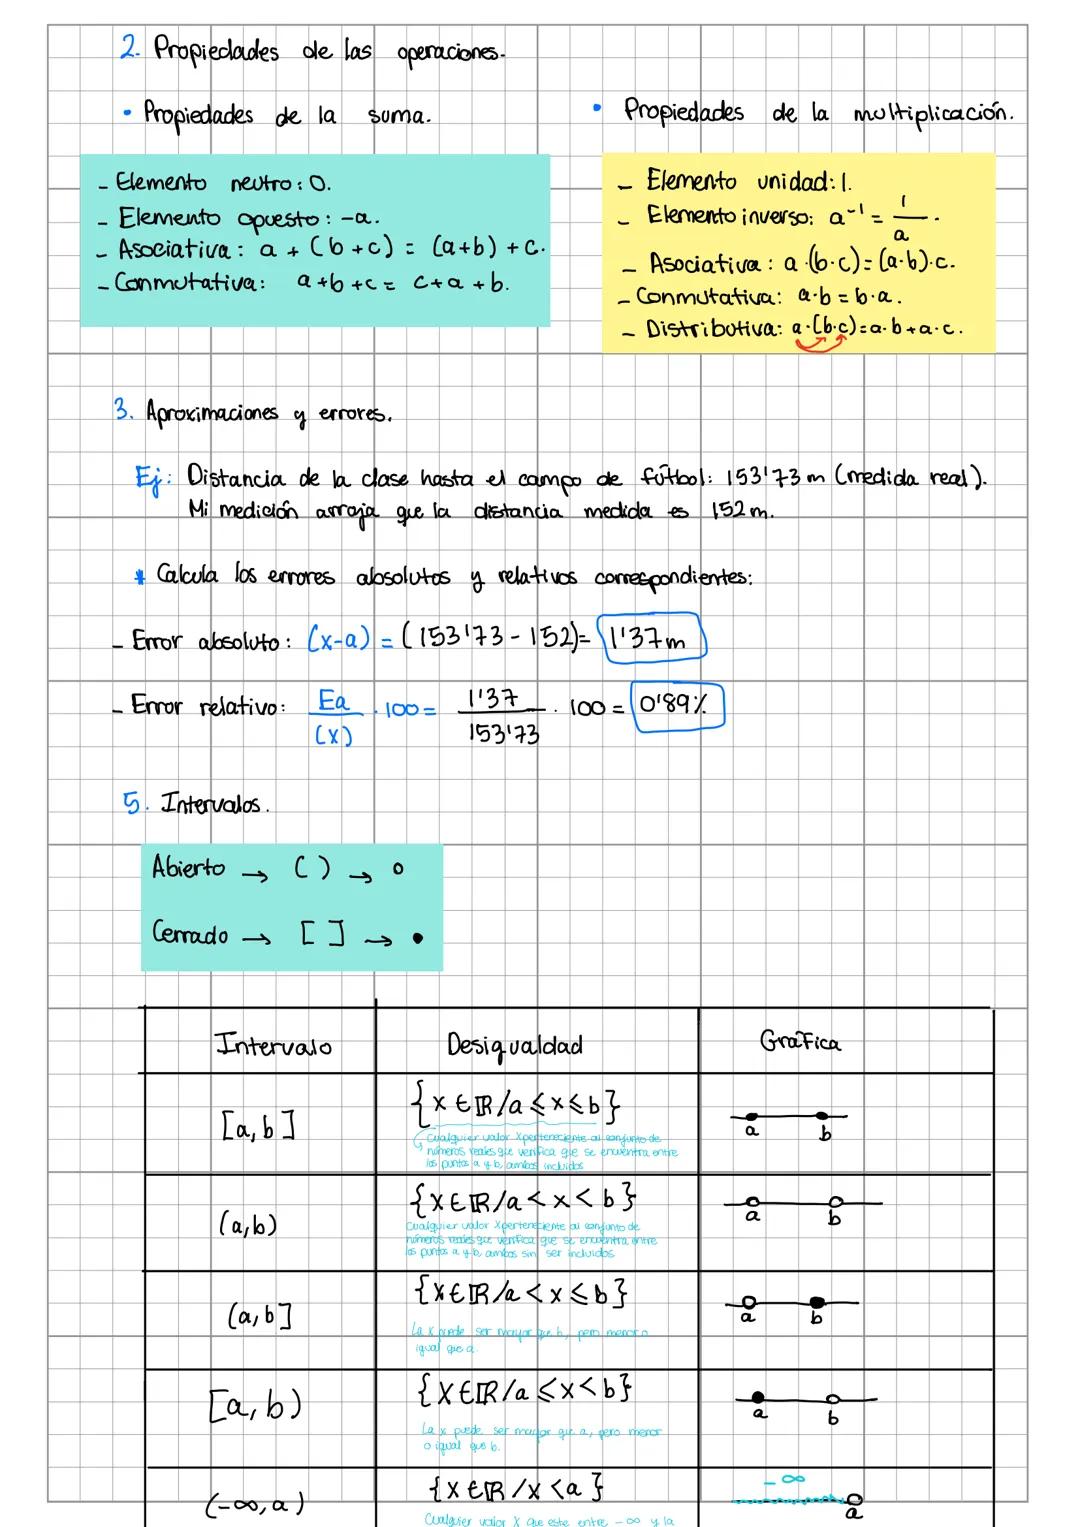 2. Propiedades de las operaciones.
• Propiedades de la suma.
- Elemento neutro: 0.
- Elemento opuesto: -a.
- Asociativa: a + (b+c) = (a+b) + c.
- Conmutativa: a+b+c = c+a+b.
• Propiedades de la multiplicación.
- Elemento unidad: 1.
- Elemento inverso: a⁻¹ = 1/a.
- Asociativa: a·(b·c)=(a·b)·c.
- Conmutativa: a·b = b·a.
- Distributiva: a·(b·c)=a·b+a·c.
3. Aproximaciones y errores.
Ej: Distancia de la clase hasta el campo de fútbol: 153'73 m (medida real).
Mi medición arroja que la distancia medida es 152 m.
* Calcula los errores absolutos y relativos correspondientes:
- Error absoluto: (x-a) = (153'73 - 152) = 1'37 m
- Error relativo: Ea/(x) · 100 = 1'37/153'73 · 100 = 0'89%
5. Intervalos.
Abierto → ( ) → ○
Cerrado → [ ] → ●
Intervalo Desigualdad Gráfica
[a,b] {x∈ℝ/a⩽x⩽b} a b
Cualquier valor x perteneciente al conjunto de
números reales que verifica que se encuentra entre
los puntos a y b, ambos incluidos
(a,b) {x∈ℝ/a<x<b} a b
Cualquier valor x perteneciente al conjunto de
números reales que verifica que se encuentra entre
los puntos a y b, ambos sin ser incluidos
(a,b] {x∈ℝ/a<x⩽b} a b
La x puede ser mayor que b, pero menor o
igual que a.
[a,b) {x∈ℝ/a⩽x<b} a b
La x puede ser mayor que a, pero menor
o igual que b.
(-∞,a) {x∈ℝ/x<a} -∞ a
Cualquier valor x que este entre -∞ y la